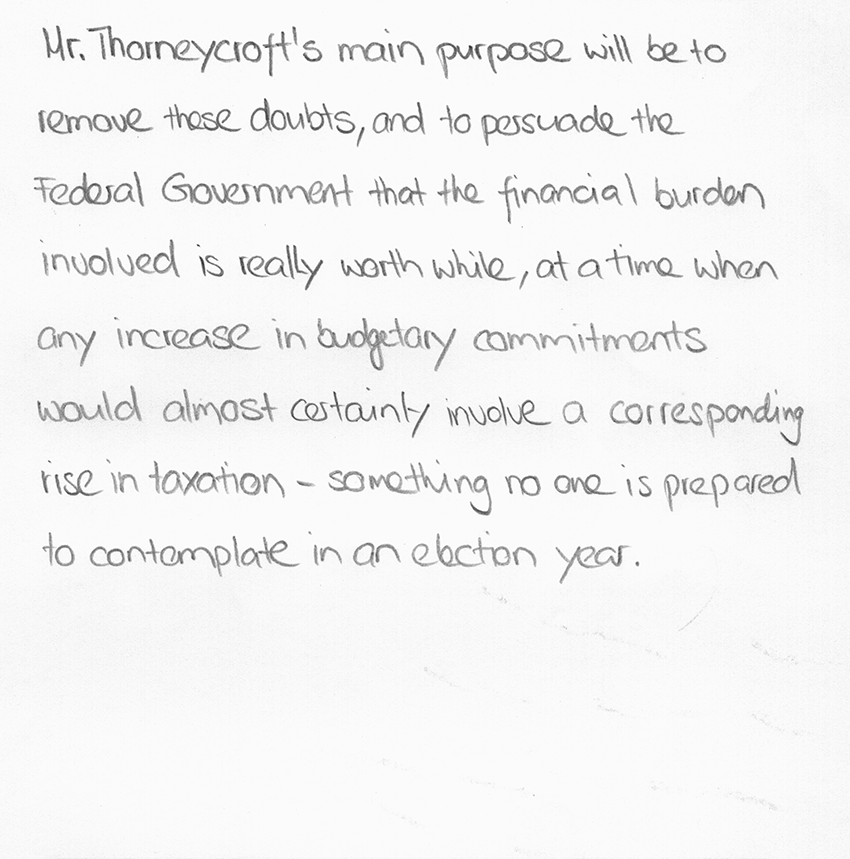 Mr. Thorneycroft's main purpose will be to
remove these doubts, and to persuade the
Federal Government that the financial burden
involved is really worth while, at a time when
any increase in budgetary commitments
would almost certainly involve a corresponding
rise in taxation - something no one is prepared
to contemplate in an election year.